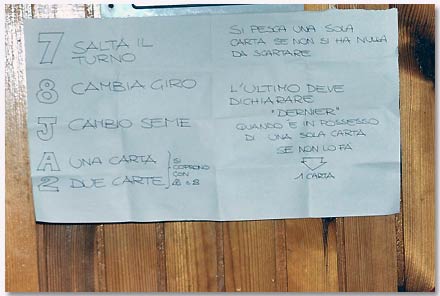 7 SALTA IL
TURNO
8 CAMBIA GIRO
J CAMBIO SEME
A UNA CARTA
2 DUE CARTE
SI
COPRONO
CON
A e 2
SI PESCA UNA SOLA
CARTA SE NON SI HA NULLA
DA SCARTARE
L'ULTIMO DEVE
DICHIARARE
"DERNIER"
QUANDO È IN POSSESSO
DI UNA SOLA CARTA
SE NON LO FÀ
1 CARTA